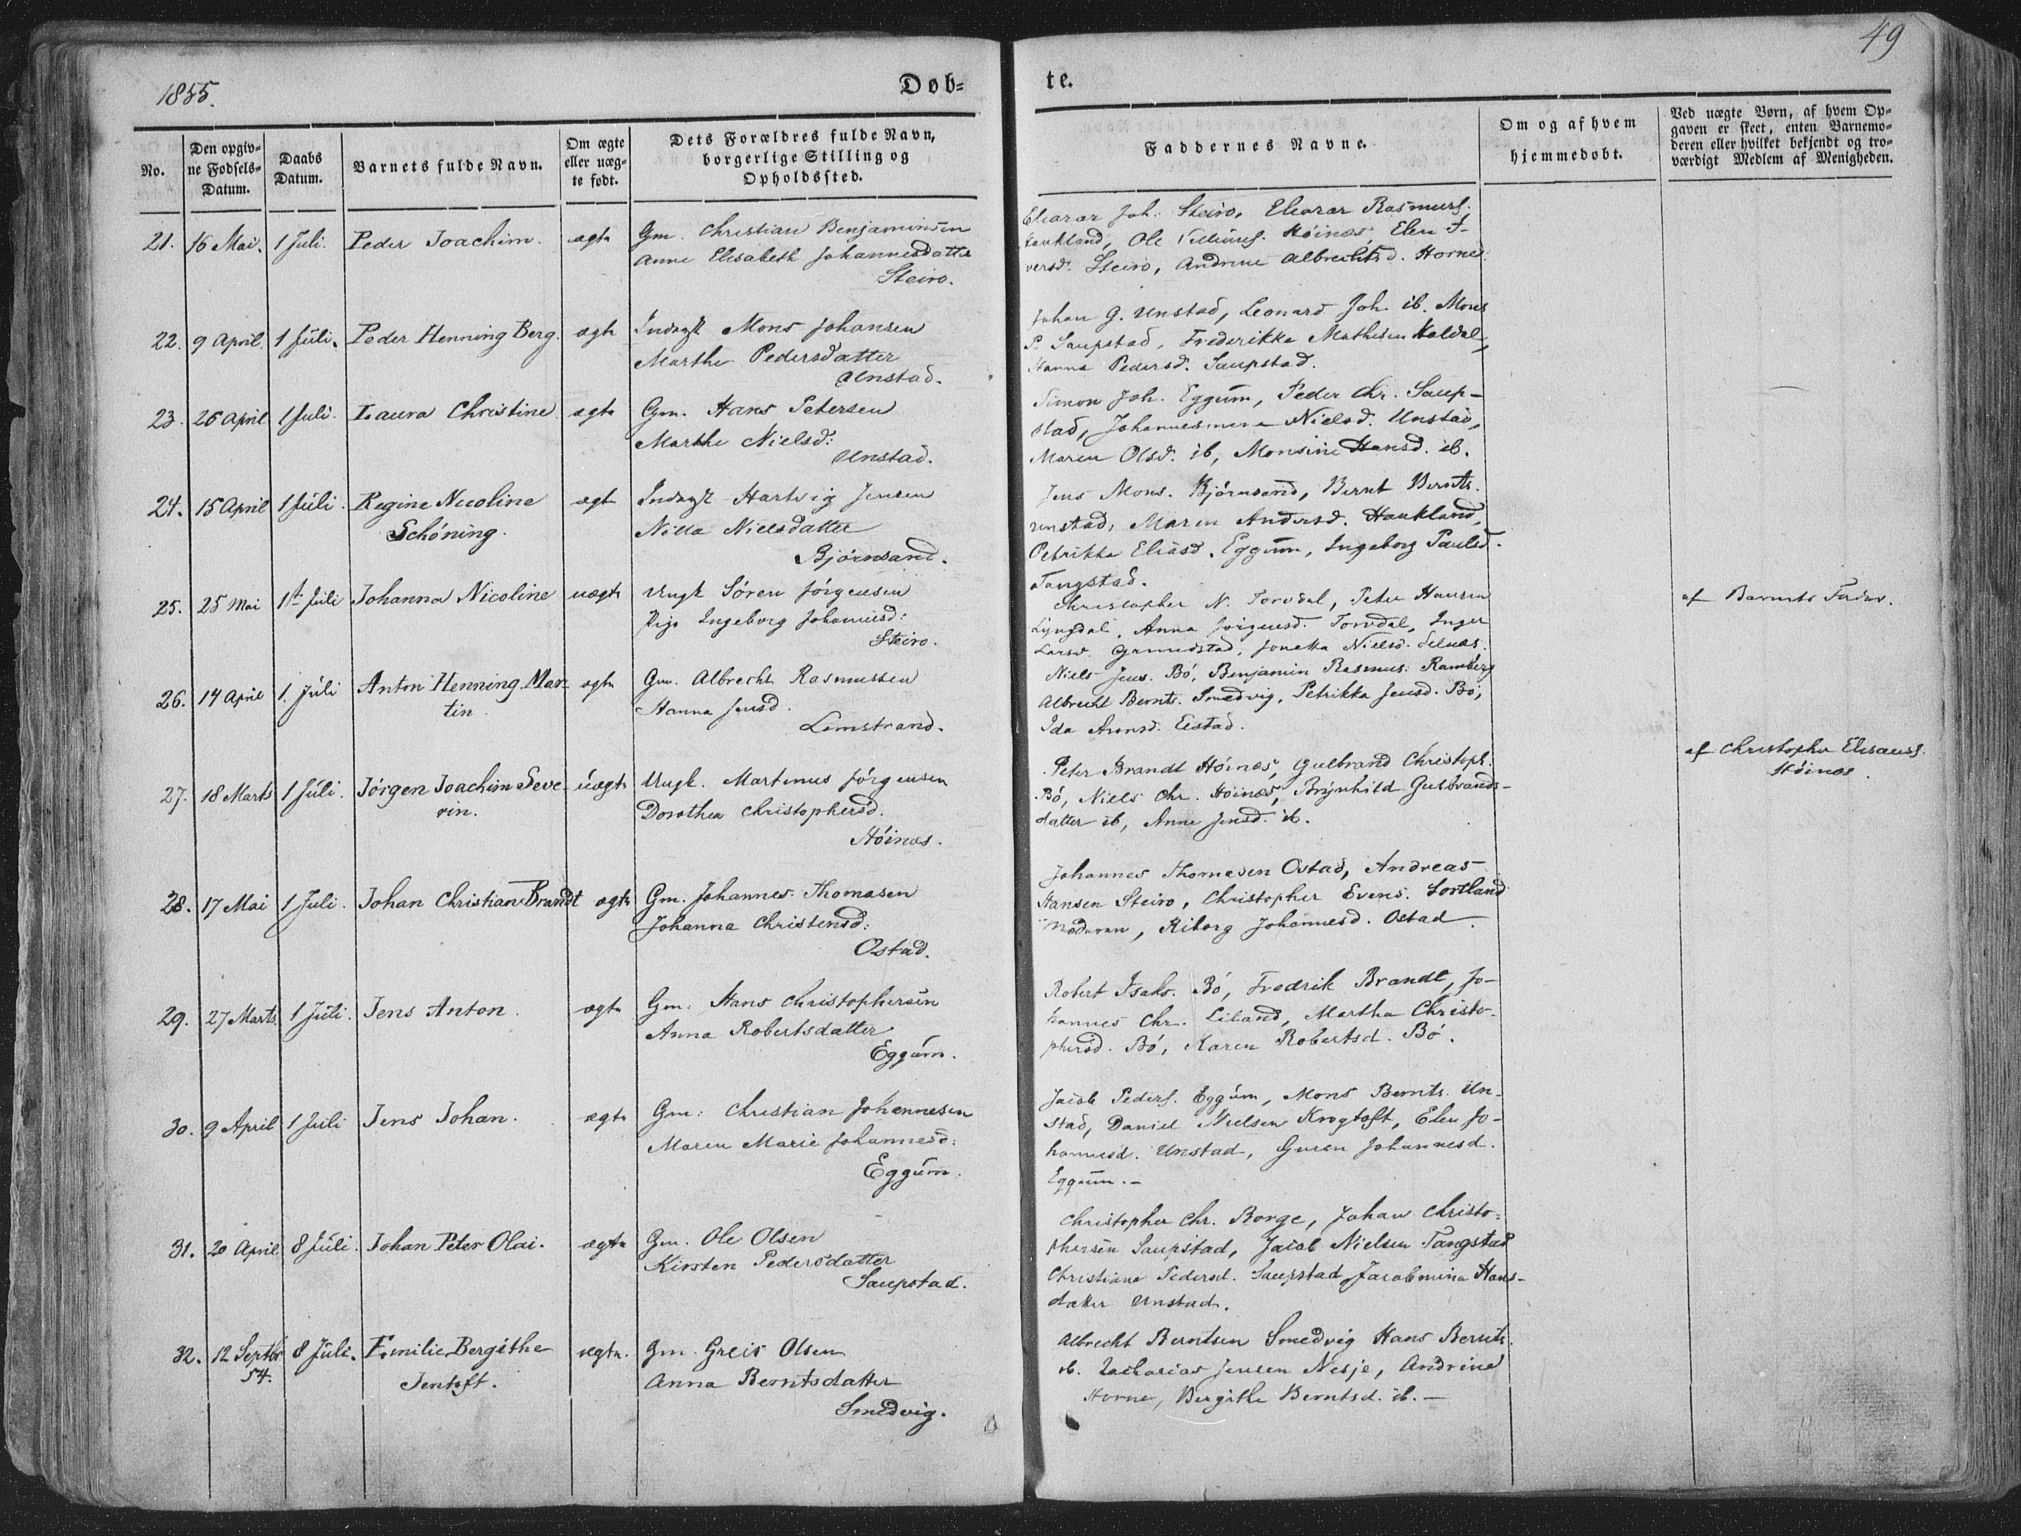 1855.
Døb-
te.
49
No.
Den opgiv-
ne Fødsels-
Datum.
Daabs
Datum.
Barnets fulde Navn.
Om ægte
eller uæg-
te født.
Dets Forældres fulde Navn,
borgerlige Stilling og
Opholdssted.
Faddernes Navne.
Om og af hvem
hjemmedøbt.
Ved uægte Børn, af hvem Op-
gaven er skeet, enten Barnemo-
deren eller hvilket bekjendt og tro-
værdigt Medlem af Menigheden.
21. 16 Mai. 1 Juli. Peder Joachim. ægte
Gm. Christian Benjaminsen
Anne Elisabeth Johannesdatter
Steiro.
Eleazar Joh. Steiro, Eleazar Rasmuss.
Haukland, Ole Høinæs Elen I-
versd. Steiro, Andrine Albrechtsd. Hornes.
22. 9 April 1 Juli. Peder Henning Berg. ægte
Inderst Mons Johansen
Marthe Pedersdatter
Unstad.
Johan G. Unstad, Leonard Joh. ib. Mons
P. Saupstad, Frederikke Mathisen Haldal,
Hanna Pedersd. Saupstad.
23. 26 April 1 Juli. Laura Christine ægte
Gm. Hans Petersen
Marthe Nielsd:
Unstad.
Simon Joh. Eggum, Peder Chr. Saup-
stad, Johannesmine Nielsd. Unstad,
Maren Olsd. ib, Monsine Hansd. ib.
24. 15 April 1 Juli. Regine Nicoline
Schøning. ægte
Inderst Hartvig Jensen
Nilla Nielsdatter
Bjørnsand.
Jens Mons. Bjørnsand, Bernt Bernts.
Unstad, Maren Andersd. Haukland,
Petrikke Eliasd. Eggum, Ingeborg Paulsd.
Tangstad.
25. 25 Mai 1st Juli Johanna Nicoline uægte
Ungk Søren Jørgensen
Pige Ingeborg Johannesd:
Steiro.
Christopher N. Torvdal, Peter Hansen
Lyngdal, Anna Jørgensd. Torvdal, Inger
Larsd. Grundstad, Jonetta Nielsd. Selnæs.
af Barnets Fader.
26. 14 April 1. Juli Anton Henning Mar-
tin. ægte
Gm. Albrecht Rasmussen
Hanna Jensd.
Limstrand.
Niels Jens. Bø, Benjamin Rasmus. Ramberg
Albrecht Bernts. Smedvig, Petrikka Jensd. Bø,
Ida Aronsd. Eistad.
27. 18 Marts 1 Juli. Jørgen Joachim Seve-
rin. uægte
Ungk. Martinus Jørgensen
Dorothea Christophersd.
Høinæs.
Peter Brandt Høinæs, Gulbrand Christoph.
Bø, Niels Chr. Høinæs, Brynhild Gulbrands-
datter ib, Anne Jensd. ib.
af Christopher Eleasars.
Høinæs.
28. 17 Mai 1 Juli. Johan Christian Brandt ægte
Gm. Johannes Thomasen
Johanna Christensd:
Ostad.
Johannes Thomasen Ostad, Andreas
Hansen Steiro, Christopher Evens. Sortland
Maduran, Kiborg Johannesd. Ostad.
29. 27 Marts 1 Juli. Jens Anton. ægte
Gm: Hans Christophersen
Anna Robertsdatter
Eggum.
Robert Isaks. Bø, Fredrik Brandt, Jo-
hannes Chr. Liland, Martha Christo-
phersd. Bø, Karen Robertsd. Bø.
30. 9 April 1 Juli Jens Johan. ægte
Gm: Christian Johannesen
Maren Marie Johannesd:
Eggum.
Jacob Peders. Eggum, Mons Bernts. Un-
stad, Daniel Nielsen Krogtoft, Elen Jo-
hannesd. Unstad, Guren Johannesd.
Eggum.-
31. 20 April 8 Juli. Johan Peter Olai. ægte
Gm. Ole Olsen
Kirsten Pedersdatter
Saupstad.
Christopher Chr. Borge, Johan Christo-
phersen Saupstad, Jacob Nielsen Tangstad
Christiane Pedersd. Saupstad, Jacobmina Hans-
datter Unstad.
32. 12 Septbr
54. 8 Juli. Emilie Bergithe
Jentoft. ægte.
Gm. Greis Olsen
Anna Berntsdatter
Smedvig.
Albrecht Berntsen Smedvig Hans Bernts.
ib. Zacharias Jensen Nesje, Andrine
Horne, Bergithe Berntsd. ib.-